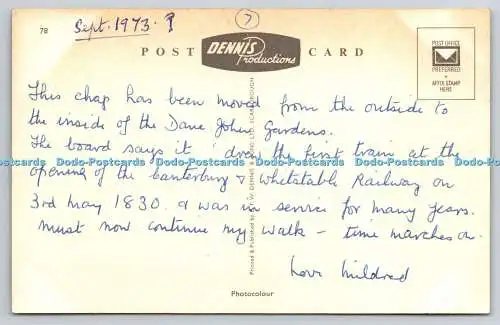 78
Sept. 1973. ?
7
POST CARD
DENNIS
Productions
POST OFFICE
PREFERRED
AFFIX STAMP
HERE
This chap has been moved from the outside to
the inside of the Dane John Gardens.
The board says it 'drew the first train at the
opening of the Canterbury & Whitstable Railway on
3rd May 1830. & was in service for many years.
Must now continue my walk - time marches on.
Love Mildred
Dodo-Postcards Dodo-Postcards Dodo-Postcards Dodo-Postcards Dodo-Postcards Dodo-Postcards
Photocolour